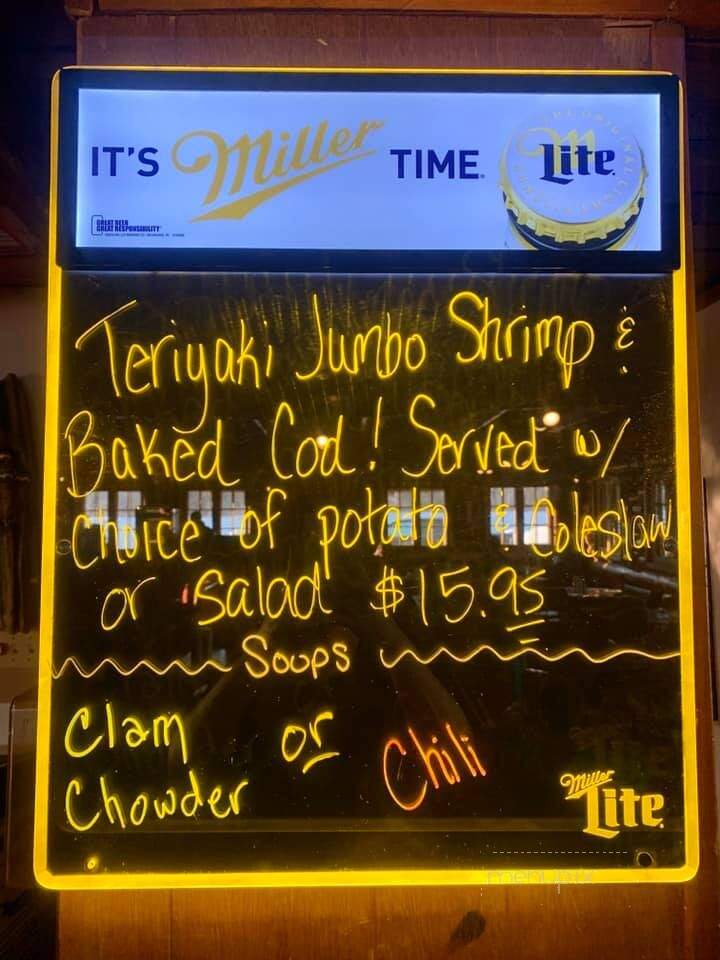 IT'S Miller TIME Lite
GREAT BEER
GREAT RESPONSIBILITY
Teriyaki Jumbo Shrimp &
Baked Cod! Served w/
choice of potato & Coleslaw
or salad $15.95
Soups
Clam or Chili
Chowder
Miller
Lite
menupix